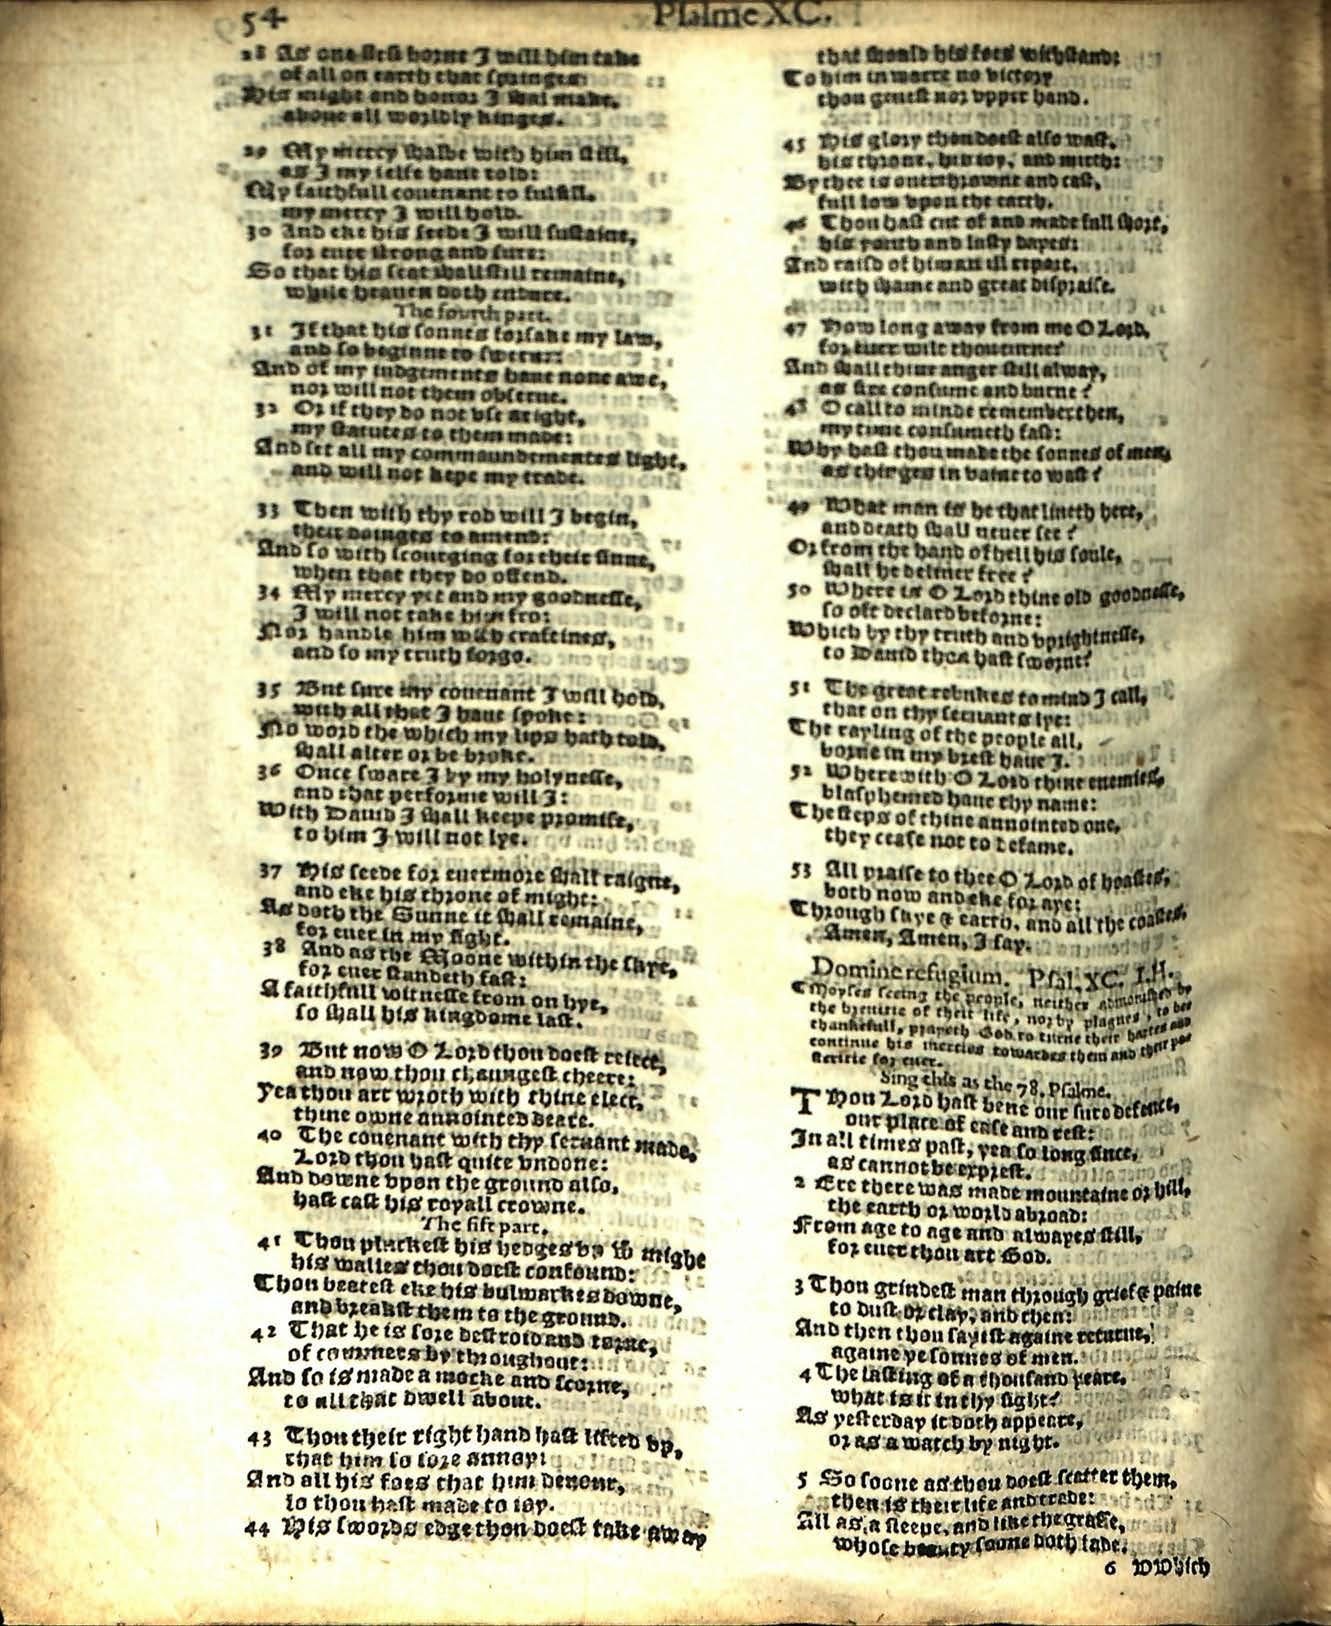 54
Psalme XC.
28 As one first borne I will him take
of all on earth that springes:
His might and honor I shal make,
aboue all worldly kinges.
29 My mercy shalbe with him still,
as I my selfe haue told:
My faithfull couenant to fulfill,
my mercy I will hold.
30 And eke his seede I will sustaine,
for euer strong and sure:
So that his seat shall still remaine,
while heauen doth endure.
The fourth part.
31 If that his sonnes forsake my law,
and so beginne to swerue:
And of my iudgements haue none awe,
nor will not them obserue.
32 Or if they do not vse aright,
my statutes to them made:
And set all my commaundementes light,
and will not kepe my trade.
33 Then with thy rod will I begin,
their doinges to amend:
And so with scourging for their sinne,
when that they do offend.
34 My mercy yet and my goodnesse,
I will not take him fro:
Nor handle him with craftines,
and so my truth forgo.
35 But sure my couenant I will hold,
with all that I haue spoke:
No word the which my lips hath told,
shall alter or be broke.
36 Once sware I by my holynesse,
and that performe will I:
With Dauid I shall keepe promise,
to him I will not lye.
37 His seede for euermore shall raigne,
and eke his throne of might:
As doth the Sunne it shall remaine,
for euer in my sight.
38 And as the Moone within the skye,
for euer standeth fast:
A faithfull witnesse from on hye,
so shall his kingdome last.
39 But now O Lord thou doest reiect,
and now thou chaungest cheere:
Yea thou art wroth with thine elect,
thine owne annointed deare.
40 The couenant with thy seruant made,
Lord thou hast quite vndone:
And downe vpon the ground also,
hast cast his royall crowne.
The fift part.
41 Thou pluckest his hedges vp wͭ might
his walles thou doest confound:
Thou beatest eke his bulwarkes downe,
and breakst them to the ground.
42 That he is sore destroid and torne,
of commers by throughout:
And so is made a mocke and scorne,
to all that dwell about.
43 Thou their right hand hast lifted vp,
that him so sore annoy:
And all his foes that him deuour,
lo thou hast made to ioy.
44 His swords edge thou doest take away
that should his foes withstand:
To him in warre no victory
thou geuest nor vpper hand.
45 His glory thou doest also wast,
his throne, his ioy, and mirth:
By thee is ouerthrowne and cast,
full low vpon the earth.
46 Thou hast cut of and made full short,
his youth and lusty dayes:
And raisd of him an ill report,
with shame and great dispraise.
47 How long away from me O Lord,
for euer wilt thou turne?
And shall thine anger still alway,
as fire consume and burne?
48 O call to minde remember then,
my time consumeth fast:
Why hast thou made the sonnes of men,
as thinges in vaine to wast?
49 What man is he that liueth here,
and death shall neuer see?
Or from the hand of hell his soule,
shall he deliuer free?
50 Where is O Lord thine old goodnesse,
so oft declard beforne:
Which by thy truth and vprightnesse,
to Dauid thou hast sworne?
51 The great rebukes to mind I call,
that on thy seruants lye:
The rayling of the people all,
borne in my brest haue I.
52 Wherewith O Lord thine enemies,
blasphemed haue thy name:
The steps of thine annointed one,
they cease not to defame.
53 All praise to thee O Lord of hoastes,
both now and eke for aye:
Through skye & earth, and all the coastes,
Amen, Amen, I say.
Domine refugium. Psal. XC. I.H.
Moyses seeing the people, neither admonished by
the breuitie of their life, nor by plagues, to be
thankefull, prayeth God to turne their hartes and
continue his mercies towardes them and their pos
teritie for euer.
Sing this as the 78. Psalme.
THou Lord hast bene our sure defence,
our place of ease and rest:
In all times past, yea so long since,
as cannot be exprest.
2 Ere there was made mountaine or hill,
the earth or world abroad:
From age to age and alwayes still,
for euer thou art God.
3 Thou grindest man through grief & paine
to dust or clay, and then:
And then thou sayist againe returne,
againe ye sonnes of men.
4 The lasting of a thousand yeare,
what is it in thy sight?
As yesterday it doth appeare,
or as a watch by night.
5 So soone as thou doest scatter them,
then is their life and trade:
All as a sleepe, and like the grasse,
whose beauty soone doth fade.
6 WWhich